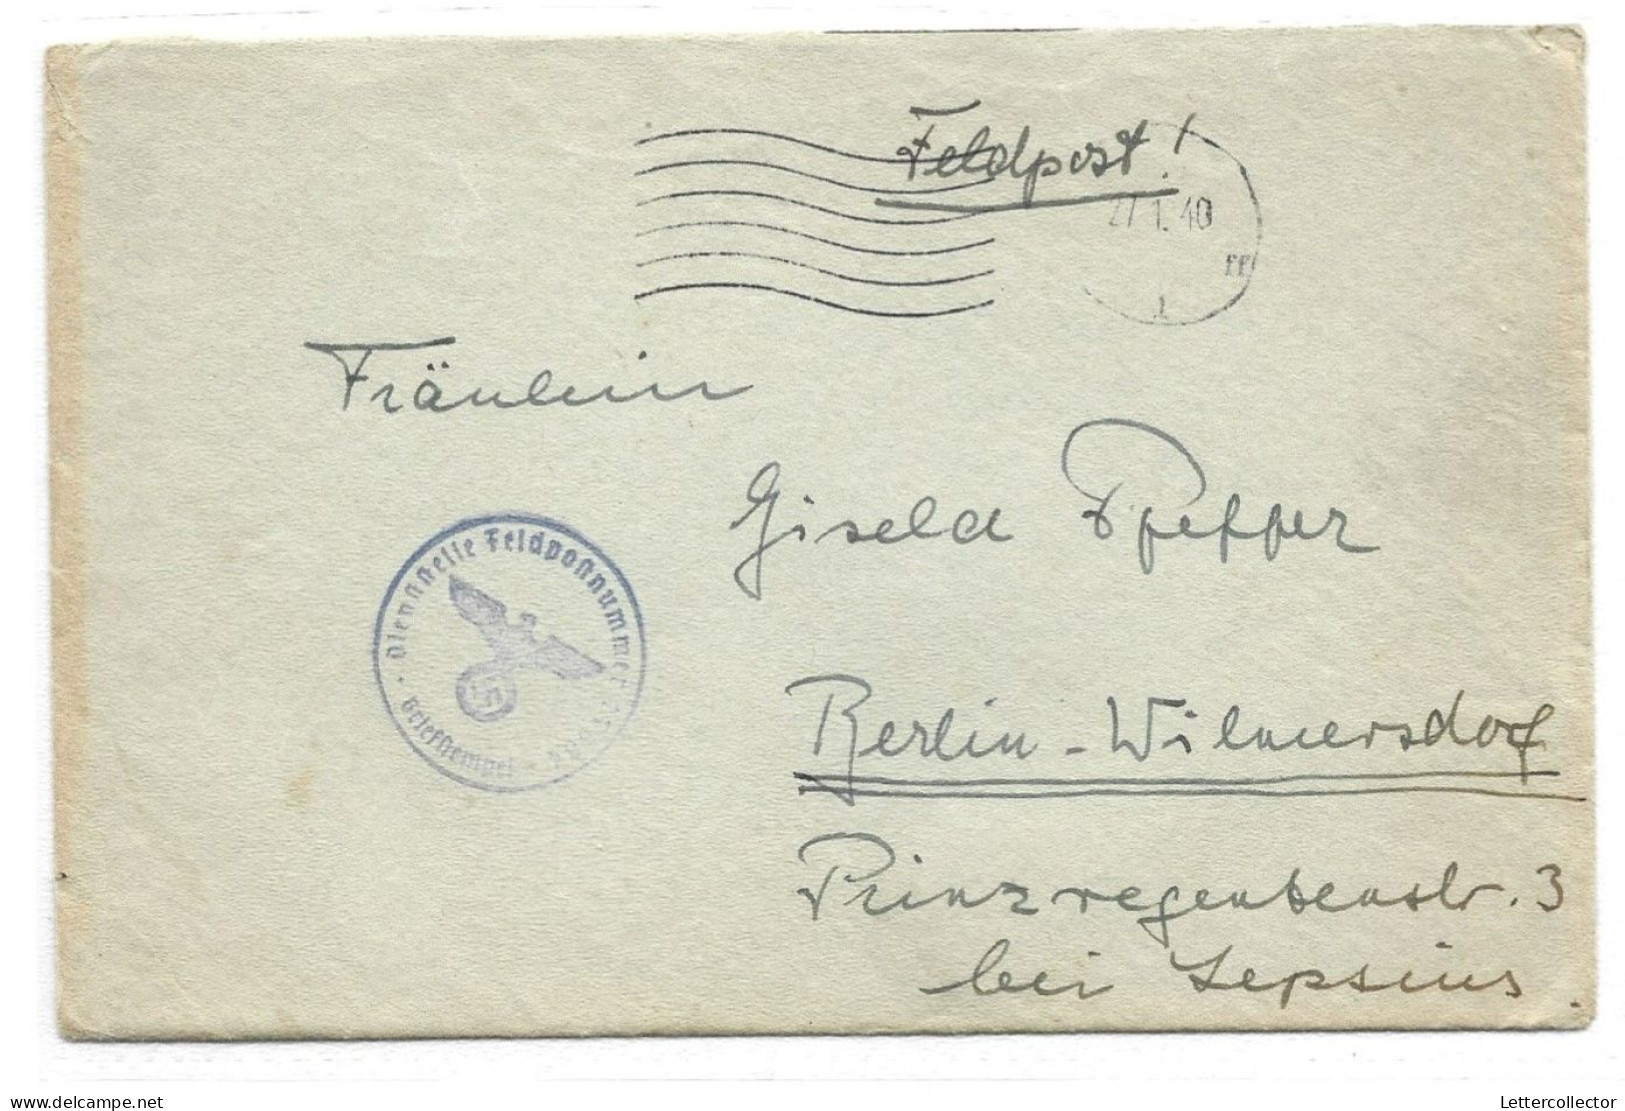 Feldpost!
27.1.40
Fräulein
Gisela Pfeffer
Dienststelle Feldpostnummer
Briefstempel
Berlin-Wilmersdorf
Prinzregentenstr. 3
bei Lepsius.
delcampe.net
Lettercollector